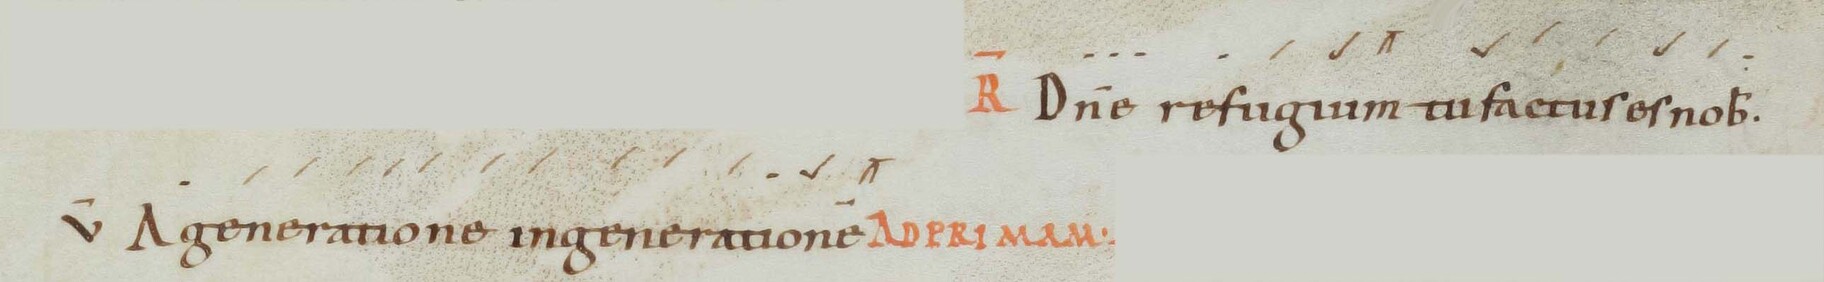 R̄ Dn̄e refugium tu factus es nob̄.
v̄ A generatione in generationē AD PRIMAM.